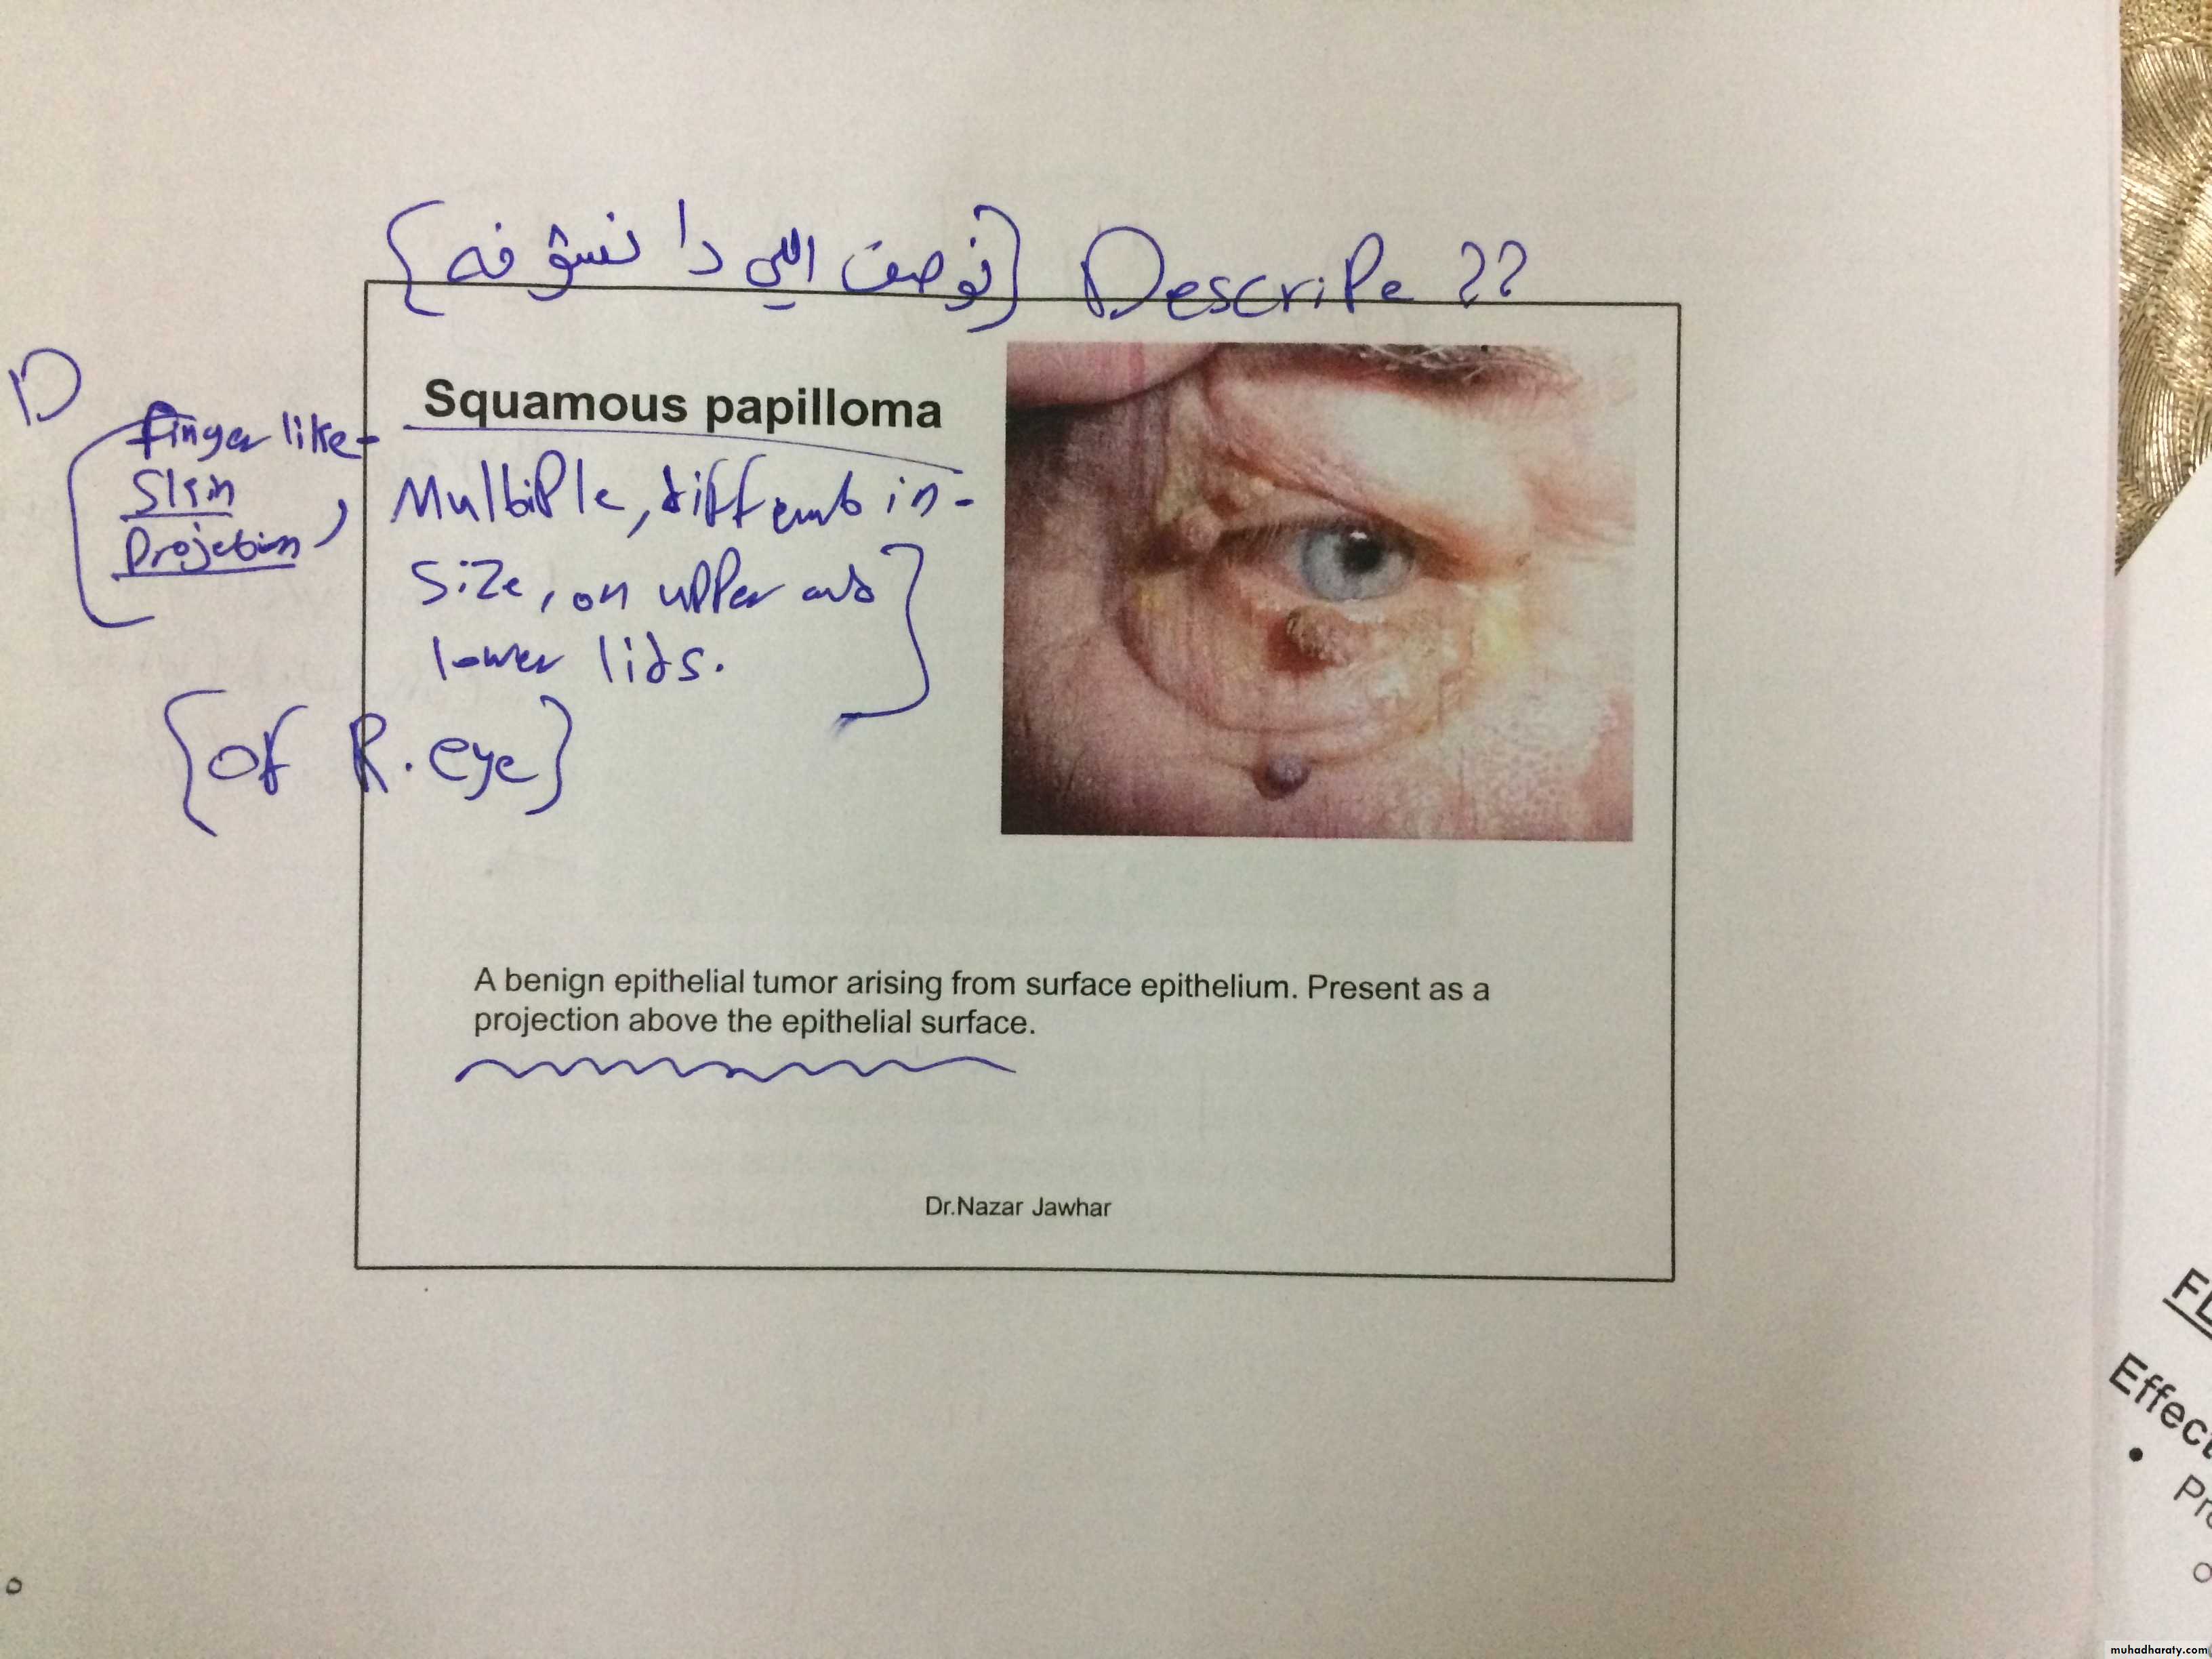 {نوصف اللي دا نشوفه} Descripe ??
Squamous papilloma
Finger like-
Skin
Projetion
Multiple, different in-
size, on upper and
lower lids.
{of R. eye}
A benign epithelial tumor arising from surface epithelium. Present as a
projection above the epithelial surface.
Dr.Nazar Jawhar
FL
Effect
• Pr
muhadharaty.com